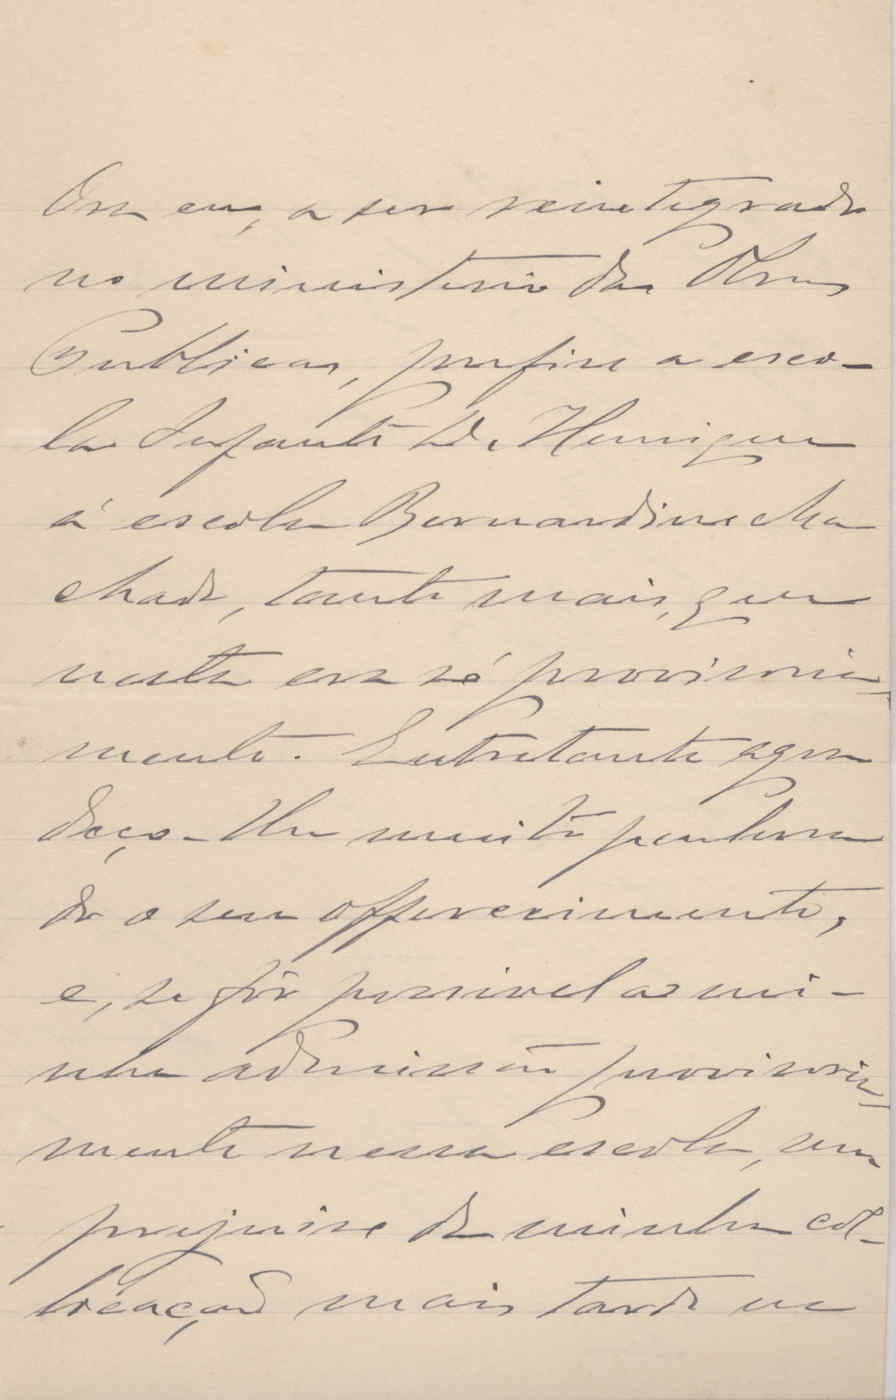 Ora eu, a ser reintegrado
no ministerio das Obras
Publicas, prefiro a esco-
la Infante D. Henrique
á escola Bernardino Ma
chado, tanto mais, que
nesta era só provisoria-
mente. Entretanto agra
deço-lhe muito penhora
do o seu offerecimento,
e, se fôr possivel a mi-
nha admissão provisoria-
mente nessa escola, sem
prejuizo da minha col-
locação mais tarde na